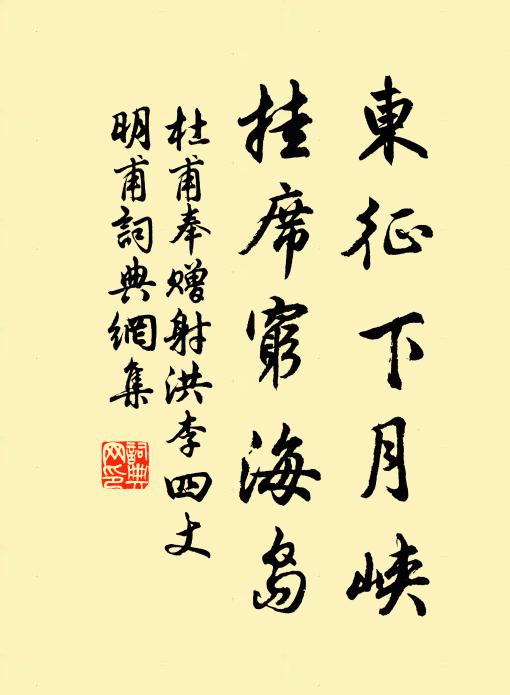 東征下月峽
挂席窮海島
杜甫奉贈射洪李四丈
明甫詞典網集
詞典
网印